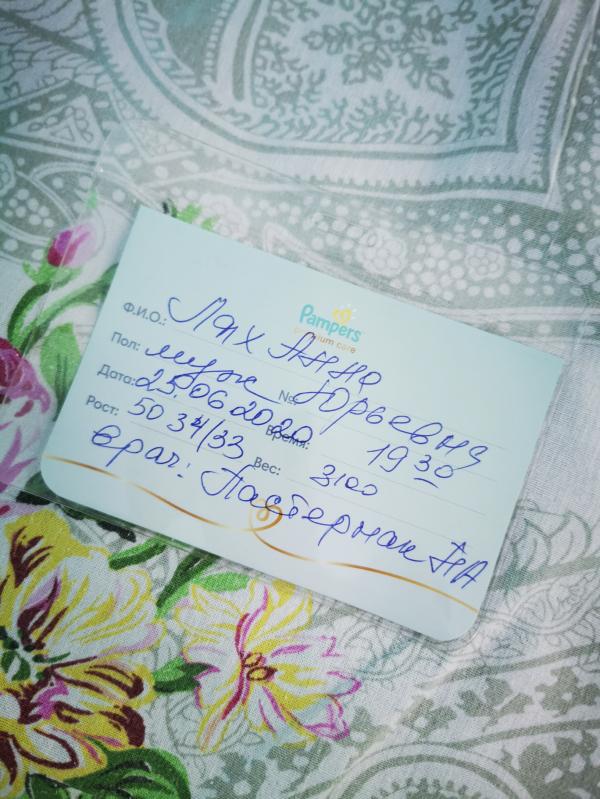 Pampers
premium care
Ф.И.О.: Лях Анна
Пол: муж № Юрьевна
Дата: 25.06.2020 Время: 19 30
Рост: 50 34/33 Вес: 3100
Врач: Пастернак НА